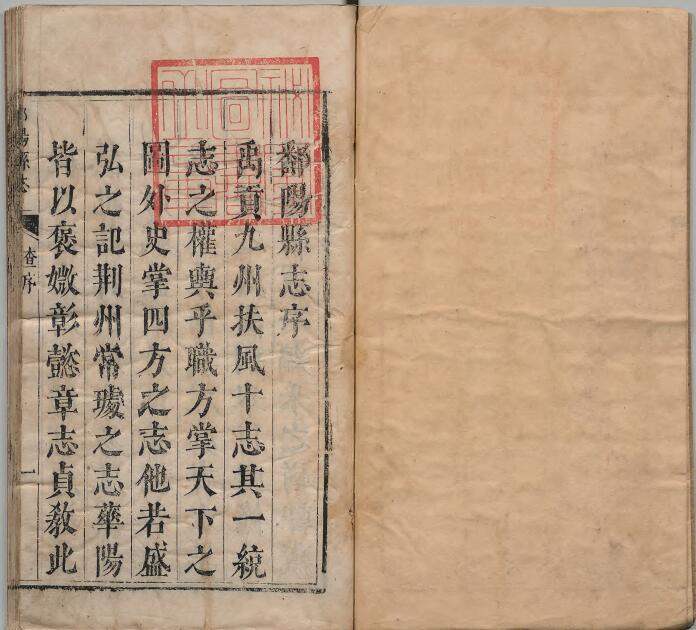 鄱陽縣志序
禹貢九州扶風十志其一統
志之權輿乎職方掌天下之
圖外史掌四方之志他若盛
弘之記荆州常璩之志華陽
皆以褒媺彰懿章志貞敎此
陽縣志
查序
一